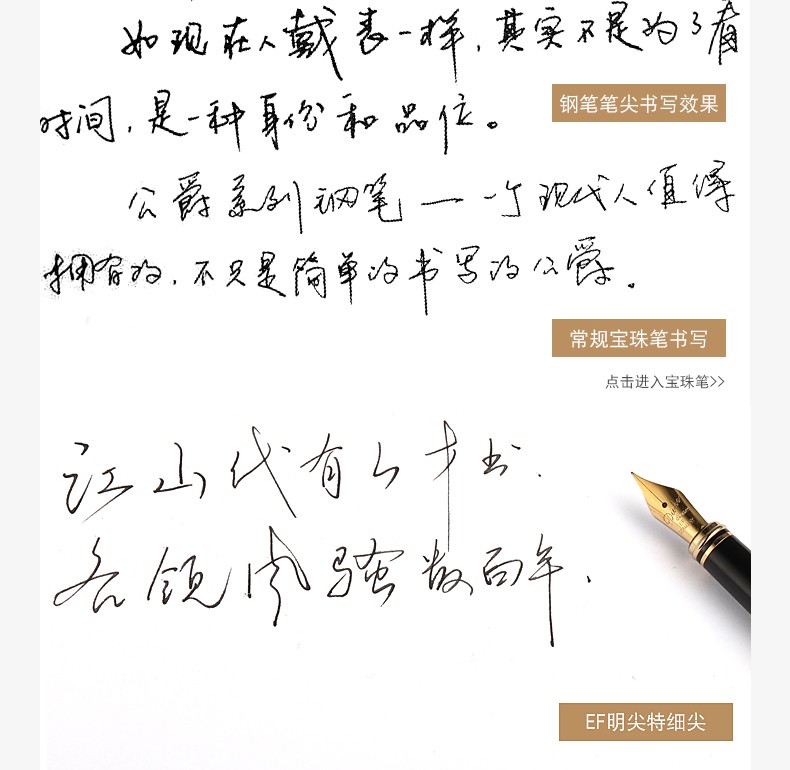 如现在人戴表一样，其实不是为了看
钢笔笔尖书写效果
时间，是一种身份和品位。
公爵系列钢笔一一个现代人值得
拥有的，不只是简单的书写的公爵。
常规宝珠笔书写
点击进入宝珠笔>>
江山代有人才出.
各领风骚数百年.
EF明尖特细尖